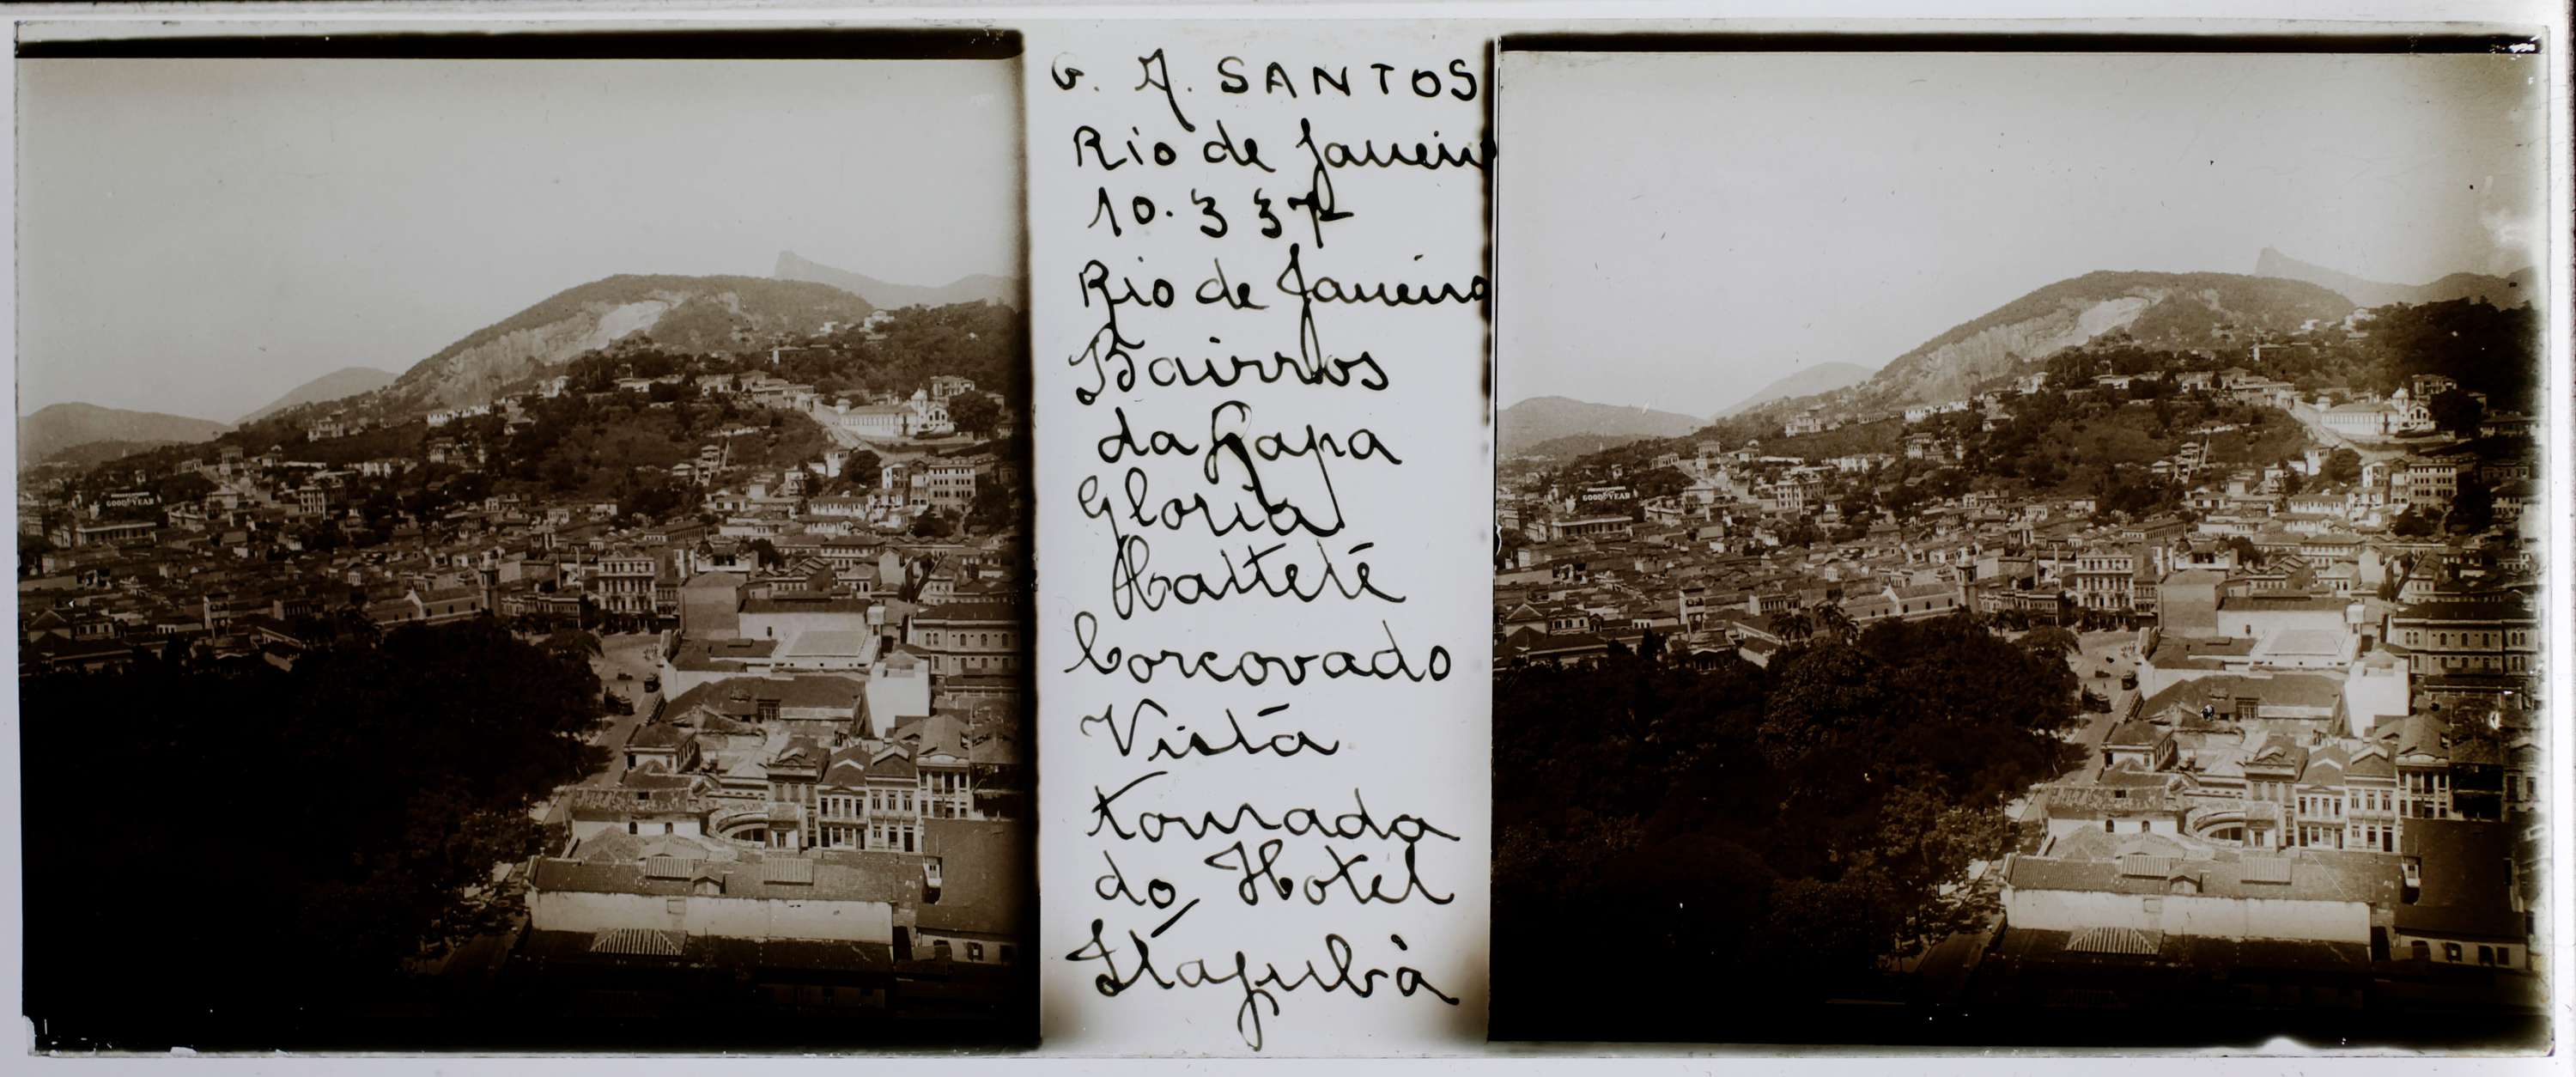 G. A. SANTOS
Rio de Janeiro
10. 3 37
Rio de Janeiro
Bairros
da Lapa
Gloria
Cattete
Corcovado
Vista
tomada
do Hotel
Itajubà
GOODYEAR
GOODYEAR